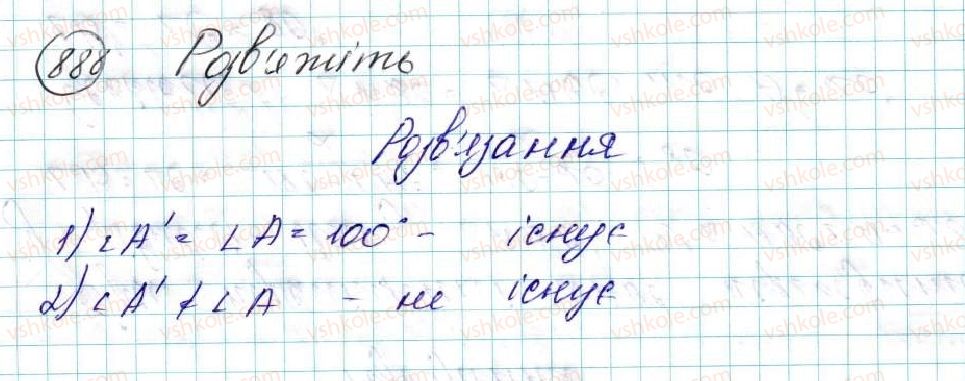 888 Розв'яжіть
Розв'язання
1) ∠A' = ∠A = 100° - існує
2) ∠A' ≠ ∠A - не існує